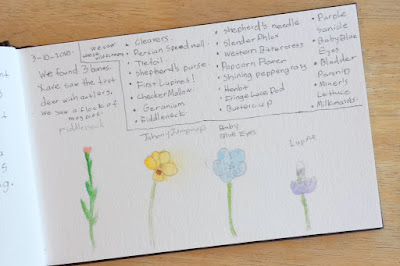 3-10-2010
We found 3 bones.
have saw the first
deer with antlers.
We saw a flock of
• Cleavers
• Persian Speedwell
• Trefoil
• shepherd's purse
• First Lupines!
• Checker Mallow
• Geranium
• Fiddleneck
• shepherd's needle
• Slender Phlox
• Western Bittercress
• Popcorn Flower
• Shining peppergrass
• Fringe Lace Pod
• Buttercup
• Purple
Sanicle
• Baby Blue
Eyes
• Bladder
Parsnip
• Miner's
Lettuce
• Milkmaids
Fiddleneck
Johnny Jumpup
Baby
Blue Eyes
Lupine